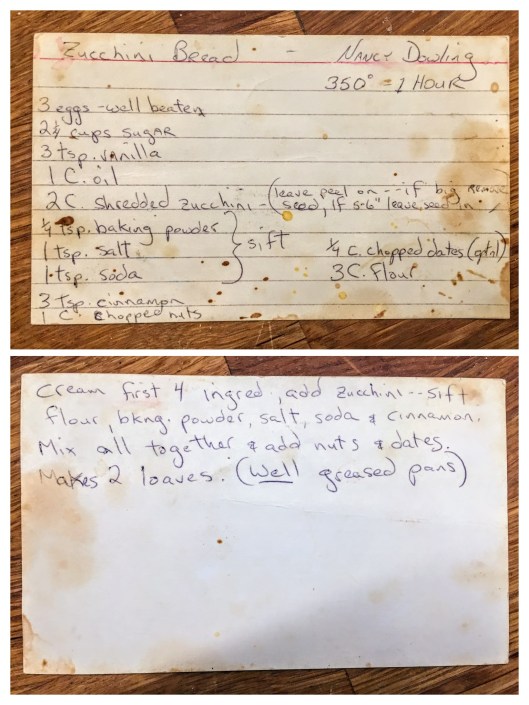 Zucchini Bread - Nancy Dowling
350° = 1 Hour
3 eggs - well beaten
2¼ cups sugar
3 tsp. vanilla
1 C. oil
2 C. shredded zucchini - (leave peel on -- if big remove
seed, if 5-6" leave seed in.)
¼ tsp. baking powder
1 tsp. salt
1 tsp. soda
sift
¼ C. chopped dates
3 C. flour
3 tsp. cinnamon
1 C. chopped nuts
Cream first 4 ingred, add zucchini -- sift
flour, bkng. powder, salt, soda & cinnamon.
Mix all together & add nuts & dates.
Makes 2 loaves. (Well greased pans)